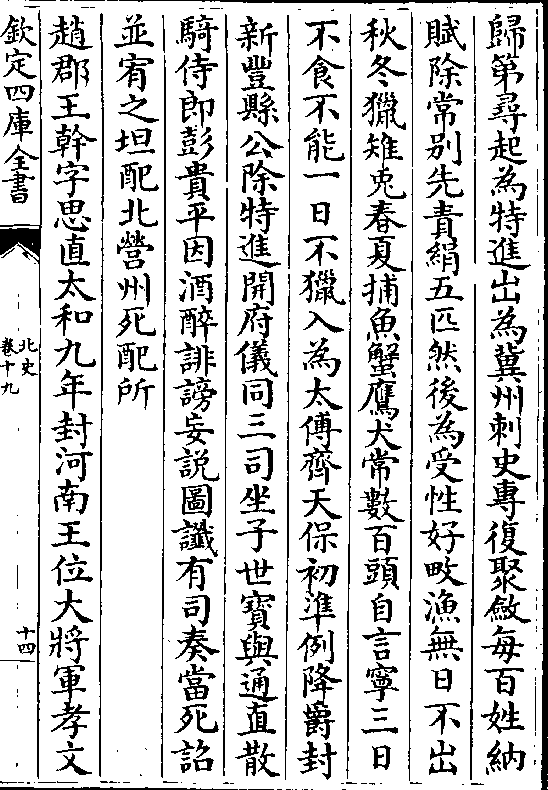 歸第尋起為特進出為冀州刺史專復聚斂每百姓納
賦除常别先責絹五匹然後為受性好畋漁無日不出
秋冬獵雉兎春夏捕魚蟹鷹犬常數百頭自言寧三日
不食不能一日不獵入為太傅齊天保初準例降爵封
新豐縣公除特進開府儀同三司坐子世寶與通直散
騎侍郎彭貴平因酒醉誹謗妄説圖讖有司奏當死詔
並宥之坦配北營州死配所
趙郡王幹字思直太和九年封河南王位大將軍孝文
欽定四庫全書
北史
卷十九
十四